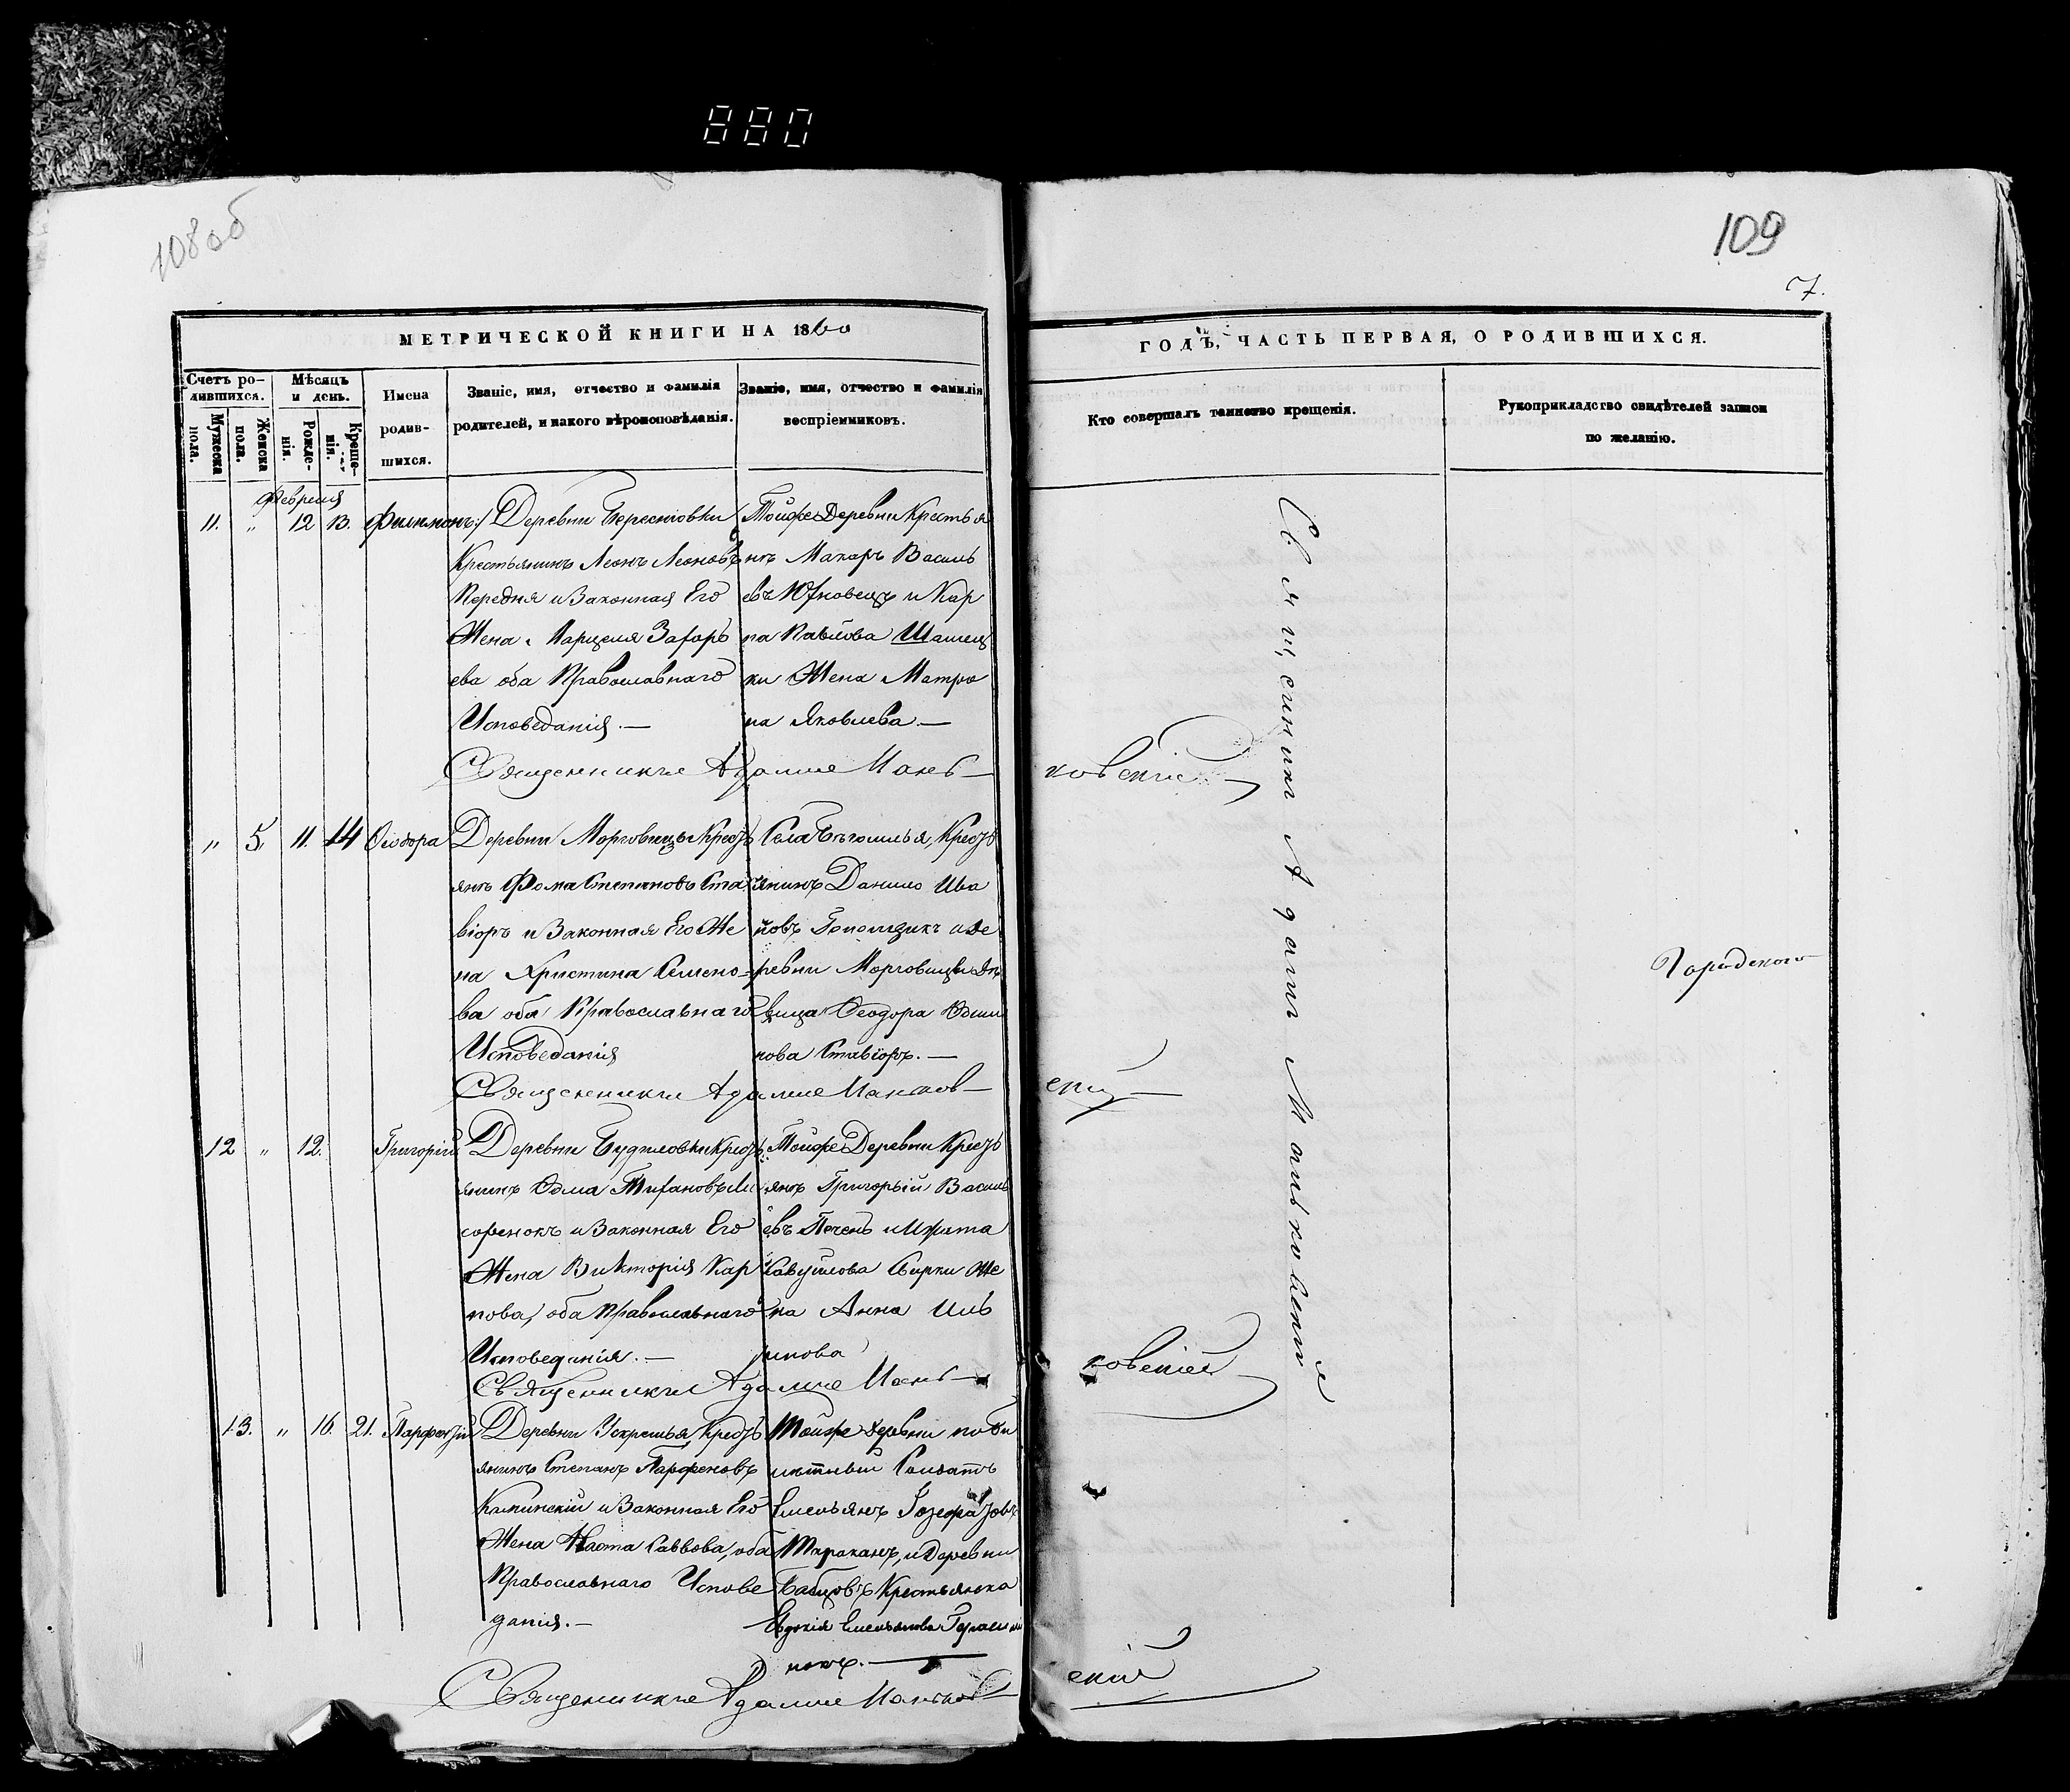 880
108 об
109
7.
МЕТРИЧЕСКОЙ КНИГИ НА 1860
ГОДЪ, ЧАСТЬ ПЕРВАЯ, О РОДИВШИХСЯ.
Счетъ ро-
дившихся.
Мужеска
пола.
Женска
пола.
Мѣсяцъ
и день.
Рожде-
нія.
Креще-
нія.
Имена
родив-
шихся.
Званіе, имя, отчество и фамилія
родителей, и какого вѣроисповѣданія.
Званіе, имя, отчество и фамилія
воспріемниковъ.
Кто совершалъ таинство крещенія.
Рукоприкладство свидѣтелей записи
по желанію.
Февраля
11. " 12 13. Филимонъ
Деревни Пересѣтовки
Крестьянинъ Леонъ Леоновъ
Передня и Законная Его
Жена Марцеля Захарь
ева оба Православнаго
Исповеданія. —
Тойже Деревни Крестья
нинъ Макаръ Василь
евъ Юхновецъ и Кар
па Павлова Шашец
ки Жена Матро
на Яковлева. —
Священникъ Адамъ Мань—
ковскій
" 5. 11. 14 Ѳеодора
Деревни Морговицы Крест
янъ Фома Степановъ Ста
віоръ и Законная Его Же
на Христина Семено-
ва оба Православнаго
Исповеданія
Села Бѣгомлья, Крест
янинъ Данило Ива
новъ и Де
ревни Морговицы Дѣ
вица Ѳеодора
нова Ставіоръ. —
Священникъ Адамъ Маньков—
скій
12 " 12. Григорій
Деревни Будиловки Крест
янинъ Тихановъ
соренокъ и Законная Его
Жена Викторія Кар
пова, оба Православнаго
Исповеданія. —
Тойже Деревни Крест
янъ Григорьій Василь
евъ Печень и Игната
Савулова Свирки Же
на Анна Иль
инова
Священникъ Адамъ Мань—
ковскій
13. " 16. 21. Парфентій
Деревни Ускрешья, Крест
янинъ Степанъ Парфеновъ
Капинскій и Законная Его
Жена Наста Саввова, оба
Православнаго Испове
данія. —
Тойже деревни по би
летный Солдатъ
Емельянъ
Тараканъ, и Деревни
Бабцовъ Крестьянка
Евдокія Емельянова Герасим
нокъ. —
Священникъ Адамъ Маньков—
скій
Священникъ Адамъ Маньковскій
Городского